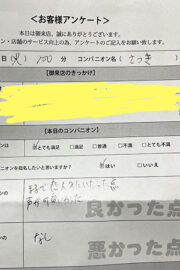 ＜お客様アンケート＞
本日は御来店、誠にありがとうございます。
ン・店舗のサービス向上の為、アンケートのご記入をお願い致します。
日 (火) 100 分 コンパニオン名 ( さつき )
【御来店のきっかけ】
【本日のコンパニオン】
とても満足 □満足 □普通 □不満 □とても不満
ニオンを指名したいと思いますか？ はい □いいえ
まるで恋人みたいだった点
声が可愛かった
良かった点
なし
悪かった点